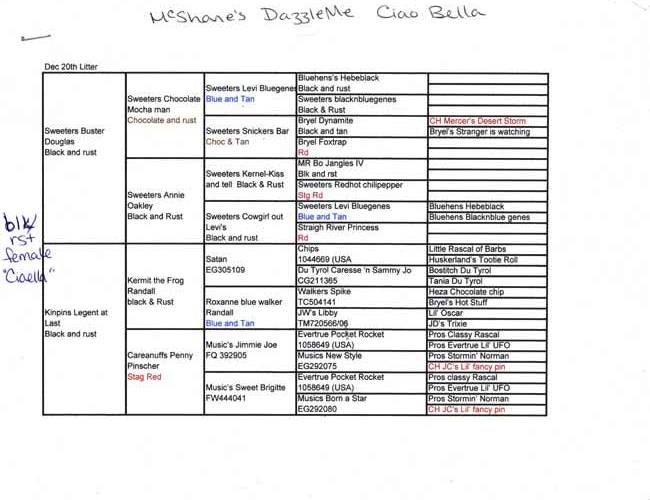 McShane's DazzleMe Ciao Bella
Dec 20th Litter
blk/
rst
female
"Ciaella"
Sweeters Buster
Douglas
Black and rust
Kinpins Legent at
Last
Black and rust
Sweeters Chocolate
Mocha man
Chocolate and rust
Sweeters Annie
Oakley
Black and Rust
Kermit the Frog
Randall
black & Rust
Careanuffs Penny
Pinscher
Stag Red
Sweeters Levi Bluegenes
Blue and Tan
Sweeters Snickers Bar
Choc & Tan
Sweeters Kernel-Kiss
and tell Black & Rust
Sweeters Cowgirl out
Levi's
Black and rust
Satan
EG305109
Roxanne blue walker
Randall
Blue and Tan
Music's Jimmie Joe
FQ 392905
Music's Sweet Brigitte
FW444041
Bluehens's Hebeblack
Black and rust
Sweeters blacknbluegenes
Black & Rust
Bryel Dynamite
Black and tan
Bryel Foxtrap
Rd
MR Bo Jangles IV
Blk and rst
Sweeters Redhot chilipepper
Stg Rd
Sweeters Levi Bluegenes
Blue and Tan
Straigh River Princess
Rd
Chips
1044669 (USA
Du Tyrol Caresse 'n Sammy Jo
CG211365
Walkers Spike
TC504141
JW's Libby
TM720566/06
Evertrue Pocket Rocket
1058649 (USA)
Musics New Style
EG292075
Evertrue Pocket Rocket
1058649 (USA)
Musics Born a Star
EG292080
CH Mercer's Desert Storm
Bryel's Stranger is watching
Bluehens Hebeblack
Bluehens Blacknblue genes
Little Rascal of Barbs
Huskerland's Tootie Roll
Bostitch Du Tyrol
Tania Du Tyrol
Heza Chocolate chip
Bryel's Hot Stuff
Lil' Oscar
JD's Trixie
Pros Classy Rascal
Pros Evertrue Lil' UFO
Pros Stormin' Norman
CH JC's Lil' fancy pin
Pros classy Rascal
Pros Evertrue Lil' UFO
Pros Stormin' Norman
CH JC's Lil' fancy pin